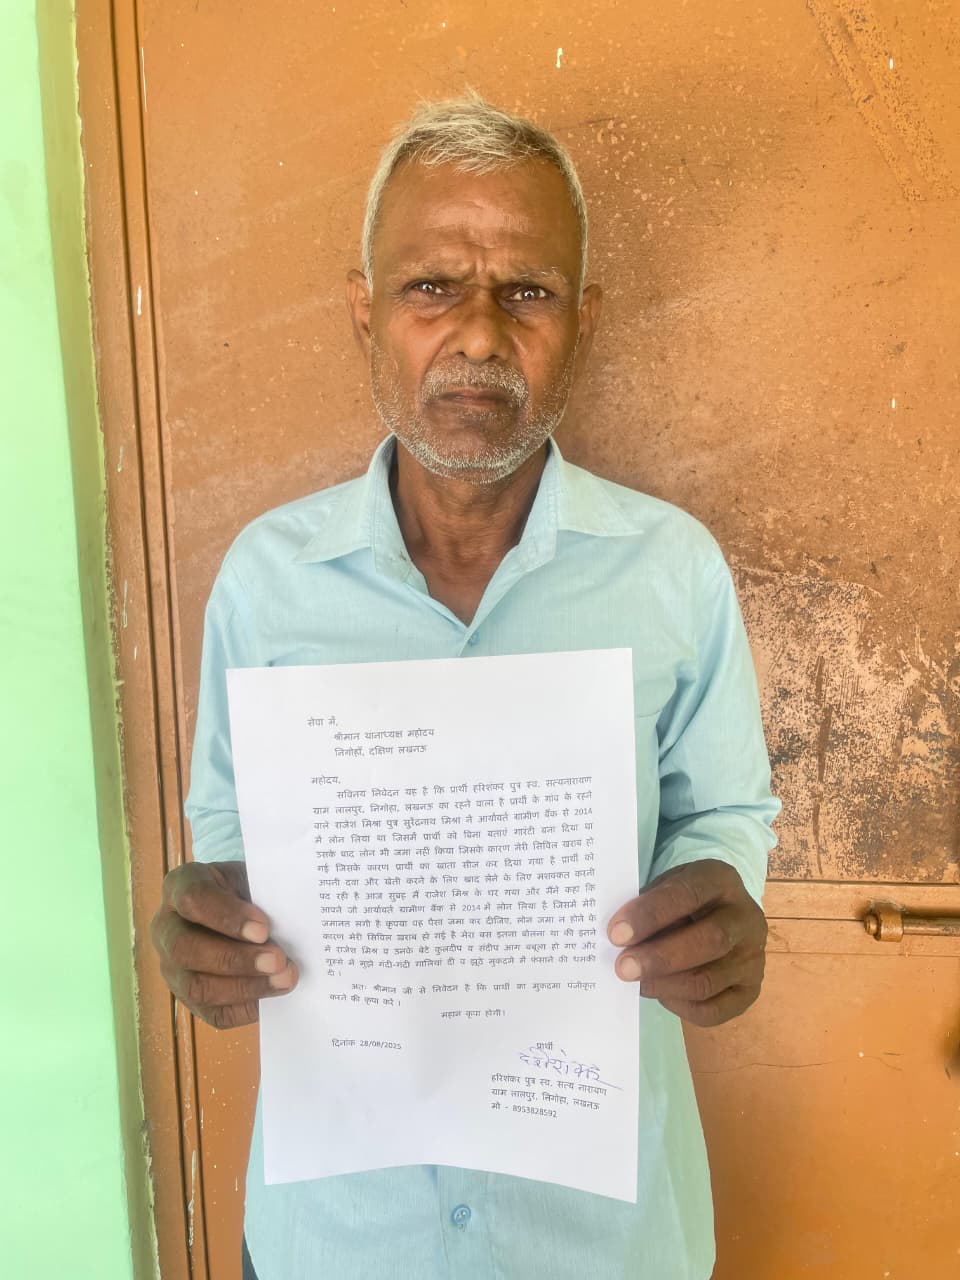 सेवा में,
श्रीमान थानाध्यक्ष महोदय
निगोहाँ, दक्षिण लखनऊ
महोदय,
सविनय निवेदन यह है कि प्रार्थी हरिशंकर पुत्र स्व. सत्यनारायण
ग्राम लालपुर, निगोहा, लखनऊ का रहने वाला है प्रार्थी के गांव के रहने
वाले राजेश मिश्रा पुत्र सुरेंद्रनाथ मिश्रा ने आर्यावर्त ग्रामीण बैंक से 2014
में लोन लिया था जिसमें प्रार्थी को बिना बताएं गारंटी बना दिया था
उसके बाद लोन भी जमा नहीं किया जिसके कारण मेरी सिविल खराब हो
गई जिसके कारण प्रार्थी का खाता सीज कर दिया गया है प्रार्थी को
अपनी दवा और खेती करने के लिए खाद लेने के लिए मशक्कत करनी
पद रही है आज सुबह में राजेश मिश्र के घर गया और मैंने कहा कि
आपने जो आर्यावर्त ग्रामीण बैंक से 2014 में लोन लिया है जिसमें मेरी
जमानत लगी है कृपया वह पैसा जमा कर दीजिए, लोन जमा न होने के
कारण मेरी सिविल खराब हो गई है मेरा बस इतना बोलना था की इतने
में राजेश मिश्र व उनके बेटे कुलदीप व संदीप आग बबूला हो गए और
गुस्से में मुझे गंदी-गंदी गालियां दी व झूठे मुकदमे में फंसाने की धमकी
दी।
अतः श्रीमान जी से निवेदन है कि प्रार्थी का मुकदमा पंजीकृत
करने की कृपा करें।
महान कृपा होगी।
दिनांक 28/08/2025
प्रार्थी
हरिशंकर पुत्र स्व. सत्य नारायण
ग्राम लालपुर, निगोहा, लखनऊ
मो - 8953828592